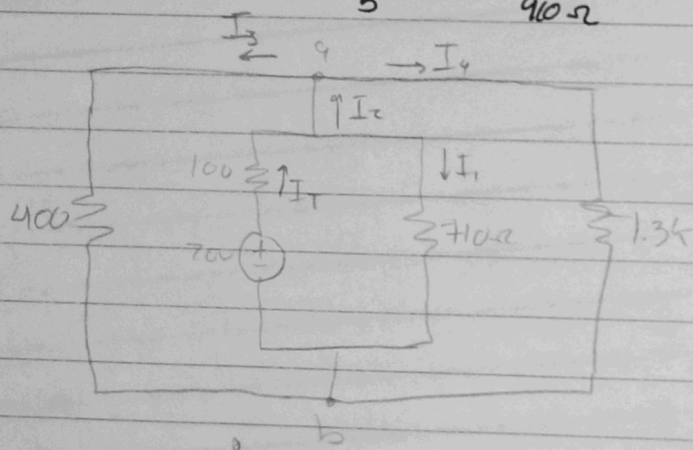 5 910Ω
I3
a
I4
I2
100
IT
I1
400
710Ω
1.3k
+
-
b